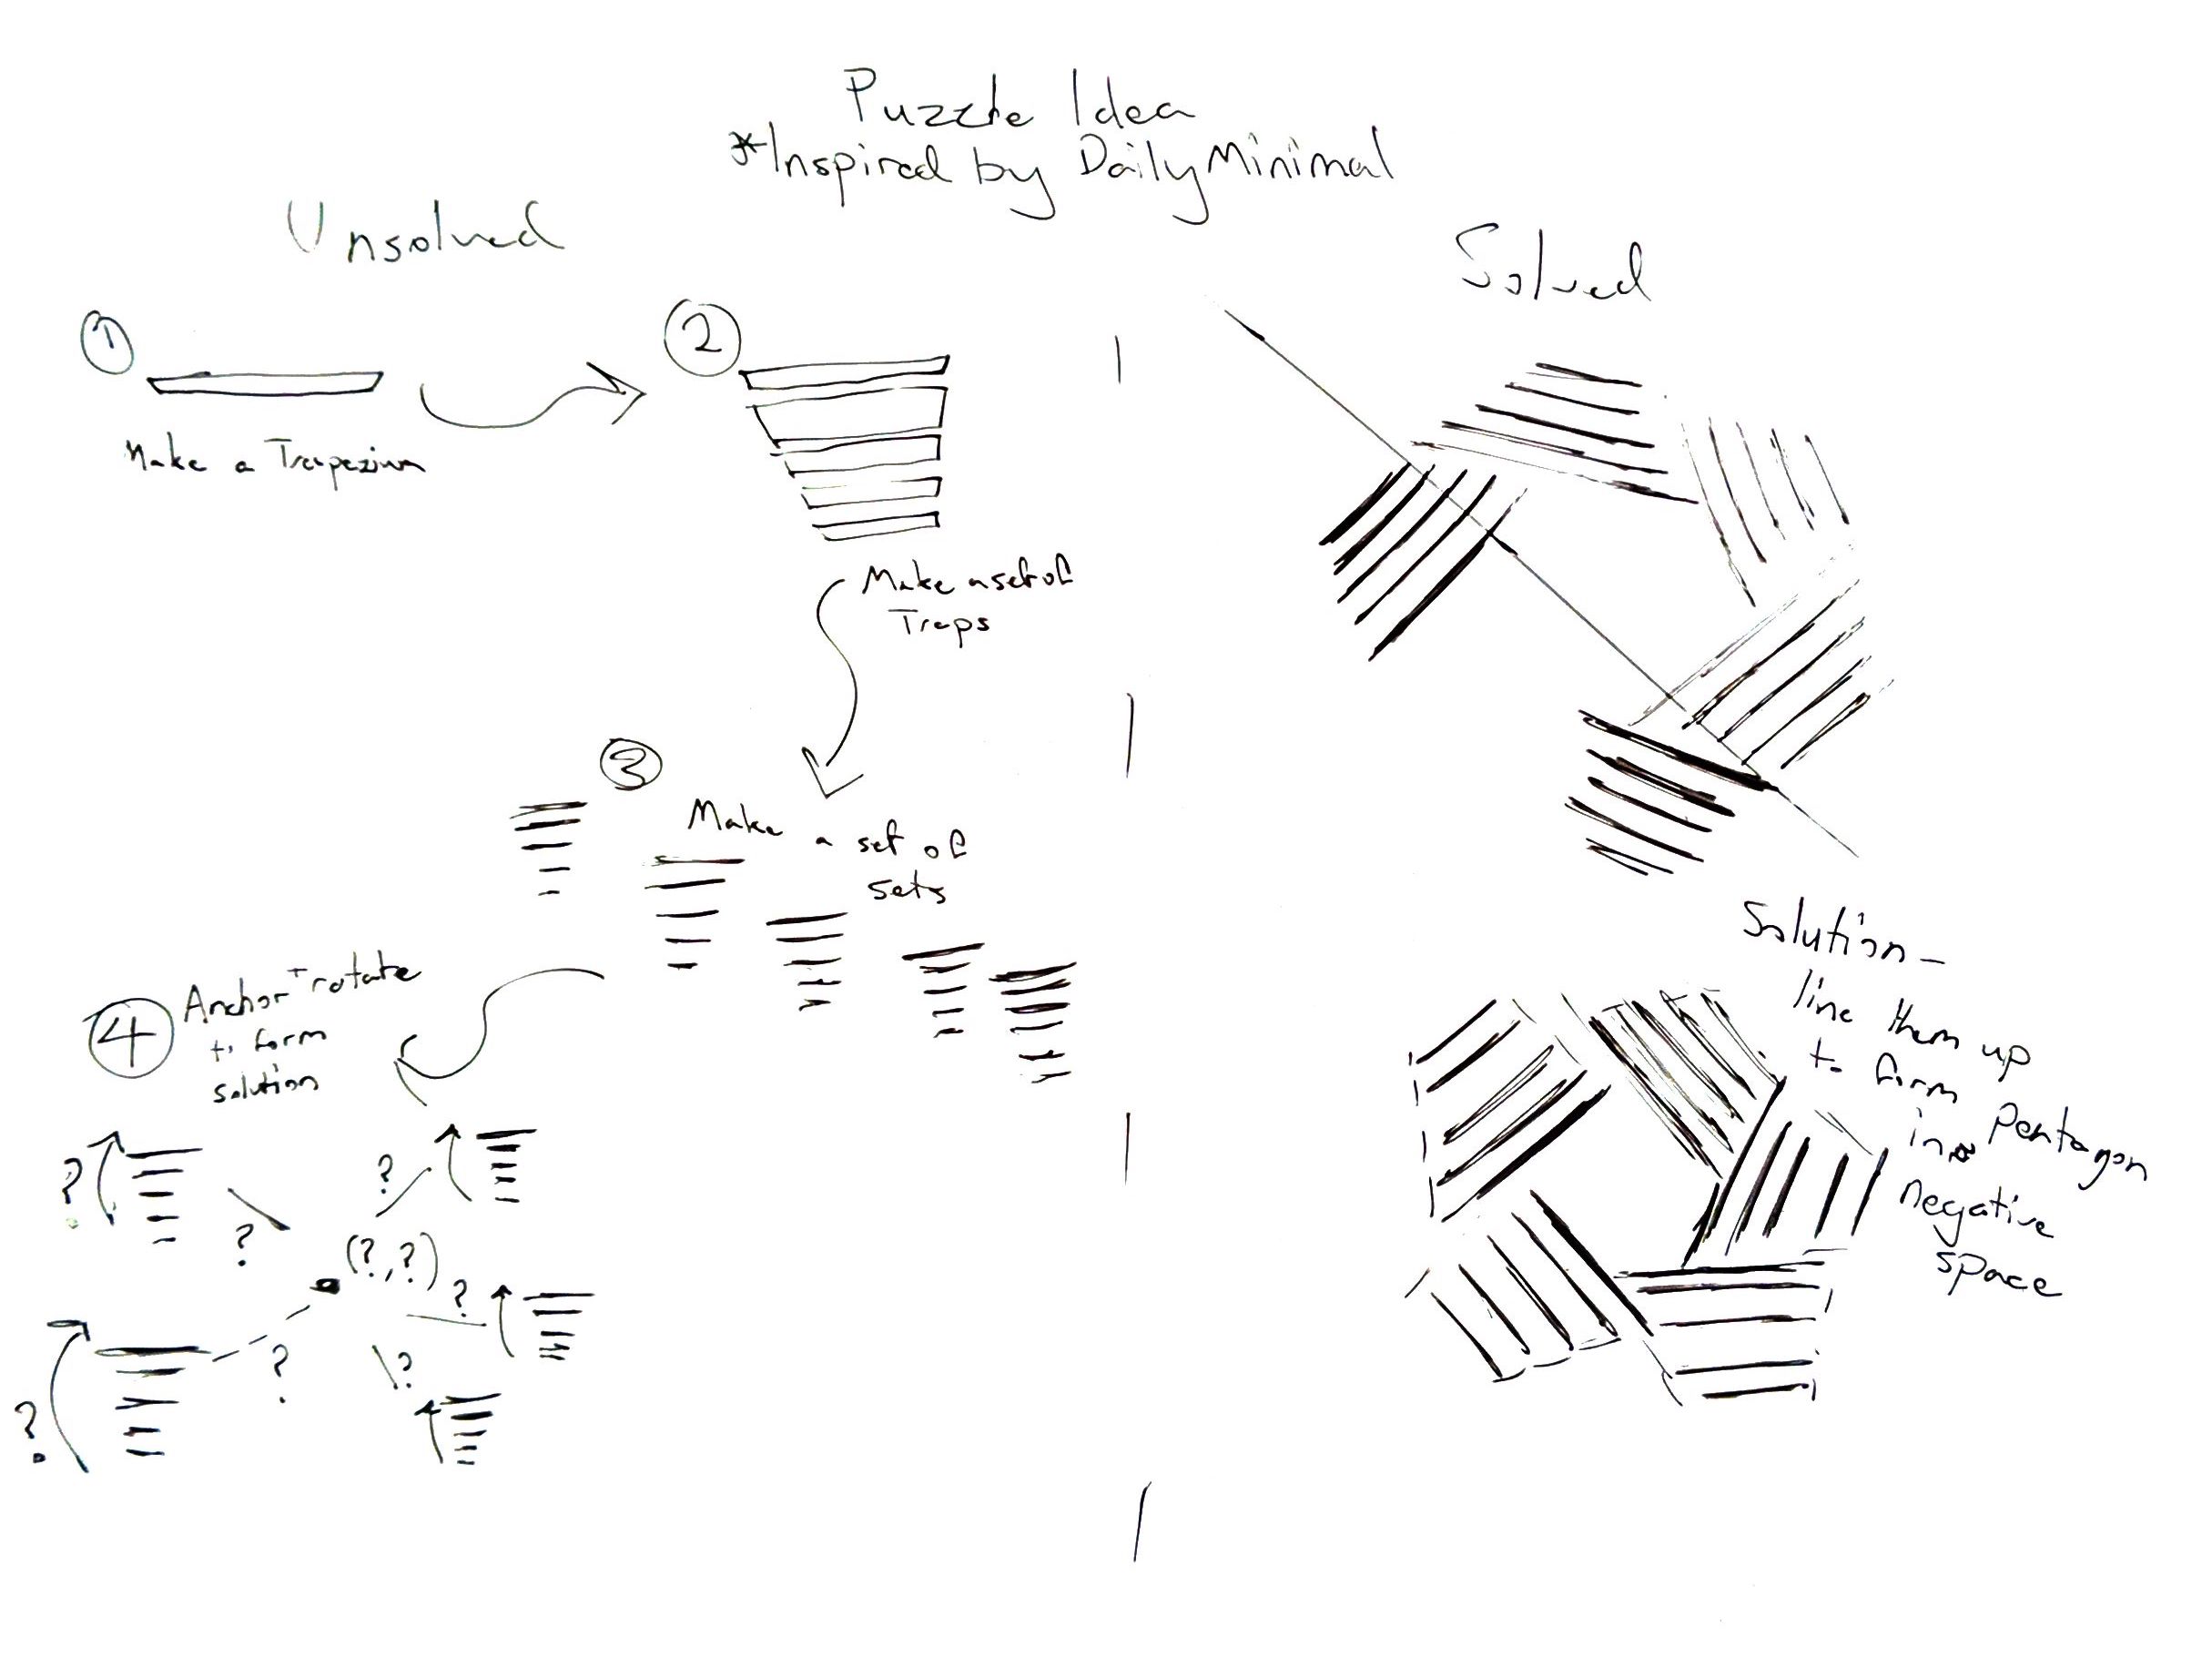 Puzzle Idea
*Inspired by DailyMinimal
Unsolved
Solved
1
Make a Trapezium
2
Make a set of
Traps
3
Make a set of
sets
4
Anchor + rotate
to form
solution
?
?
?
(?,?)
?
?
?
?
Solution -
line them up
to form
in a Pentagon
negative
space